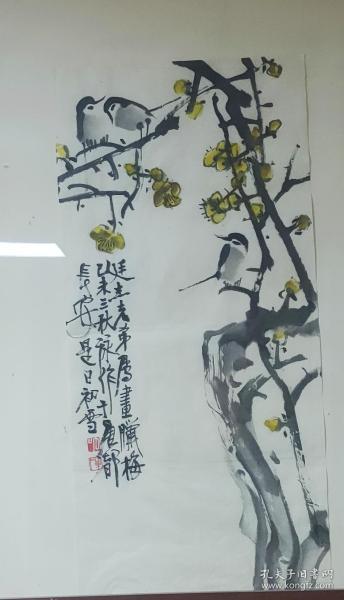 廷杰老弟属畫臘梅
乙未三秋詠作于唐都
長安是日初雪
孔夫子旧书网
www.kongfz.com